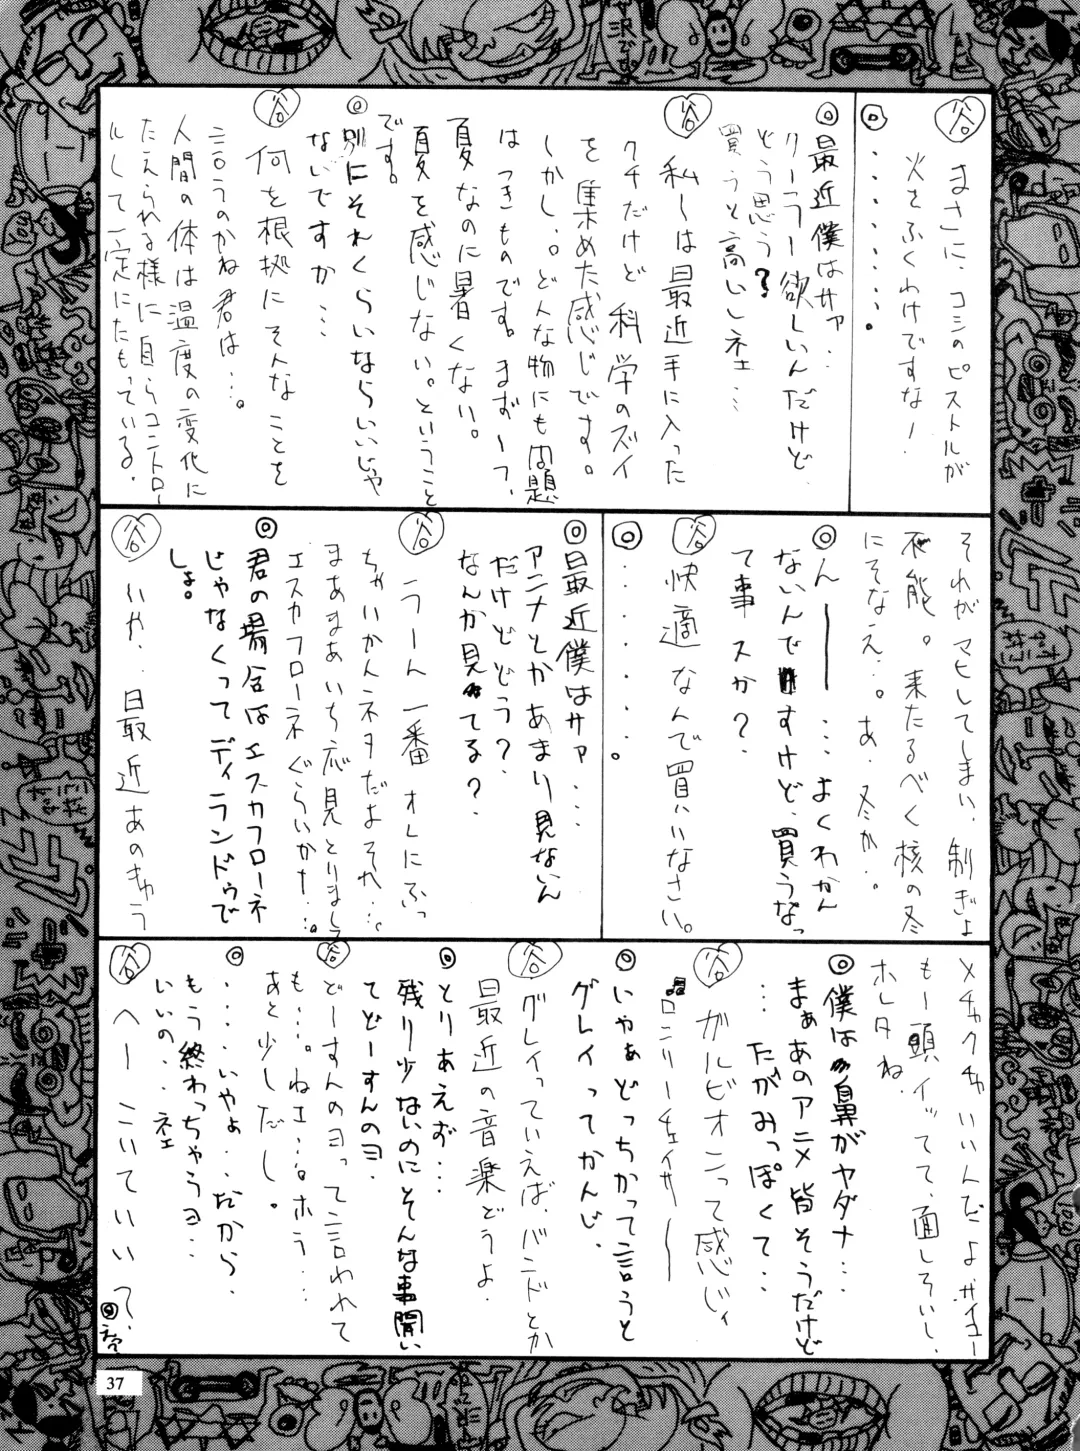 谷 まさに、コシのピストルが
火をふくわけですな!
◎・・・・・・・・。
◎最近僕はサァ…
クーラー欲しいんだけど、
どう思う?
買うと高いしネェ…
谷 私しは最近手に入った
クチだけど 科学のズイ
を集めた感じです。
しかし、。どんな物にも問題
はつきものです。まず一つ、
夏なのに暑くない。
夏を感じない。ということ
です。
◎別にそれくらいならいいじゃ
ないですか…
谷 何を根拠にそんなことを
言うのかね君は…。
人間の体は温度の変化に
たえられる様に自らコントロー
ルして一定にたもっている。
それがマヒしてしまい、制ぎょ
不能。来たるべく核の冬
にそなえ…。あ、冬か。
◎んーー…よくわかん
ないんですけど、買うなっ
て事スか?
谷 快適なんで買いなさい。
◎・・・・・・。
◎最近僕はサァ…
アニメとかあまり見ないん
だけどどう?
なんか見てる?
谷 うーん 一番 オレにふっ
ちゃいかんネタだよそれ…。
まあまあいち応見とりまして
エスカフローネぐらいかナ…。
◎君の場合はエスカフローネ
じゃなくってディランドゥで
しょ。
谷 いや、最近あのきゅう
メチャクチャいいんだよサイコー
もー頭イッてて、面しろいし、
ホレタね、
◎僕は鼻がヤダナ…
まぁあのアニメ皆そうだけど
…たがみっぽくて…
谷 ガルビオンって感じィ
♫ロンリーチェイサーー
◎いやぁどっちかって言うと
グレイってかんじ、
谷 グレイっていえば、バンドとか
最近の音楽どうよ、
◎とりあえず…
残り少ないのにそんな事聞い
てどーすんのヨ、
谷 どーすんのヨって言われて
も…。ねェ…。ホラ…
あと少しだし。
◎・・・・いやょ…だから、
もう終わっちゃうヨ…
いいの…ネェ
谷 へー こいていい?、
37